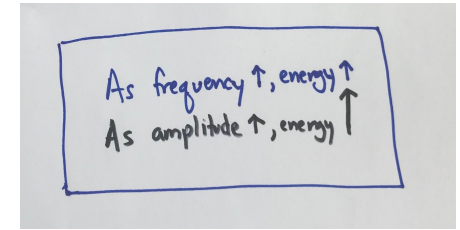 As frequency ↑, energy ↑
As amplitude ↑, energy ↑